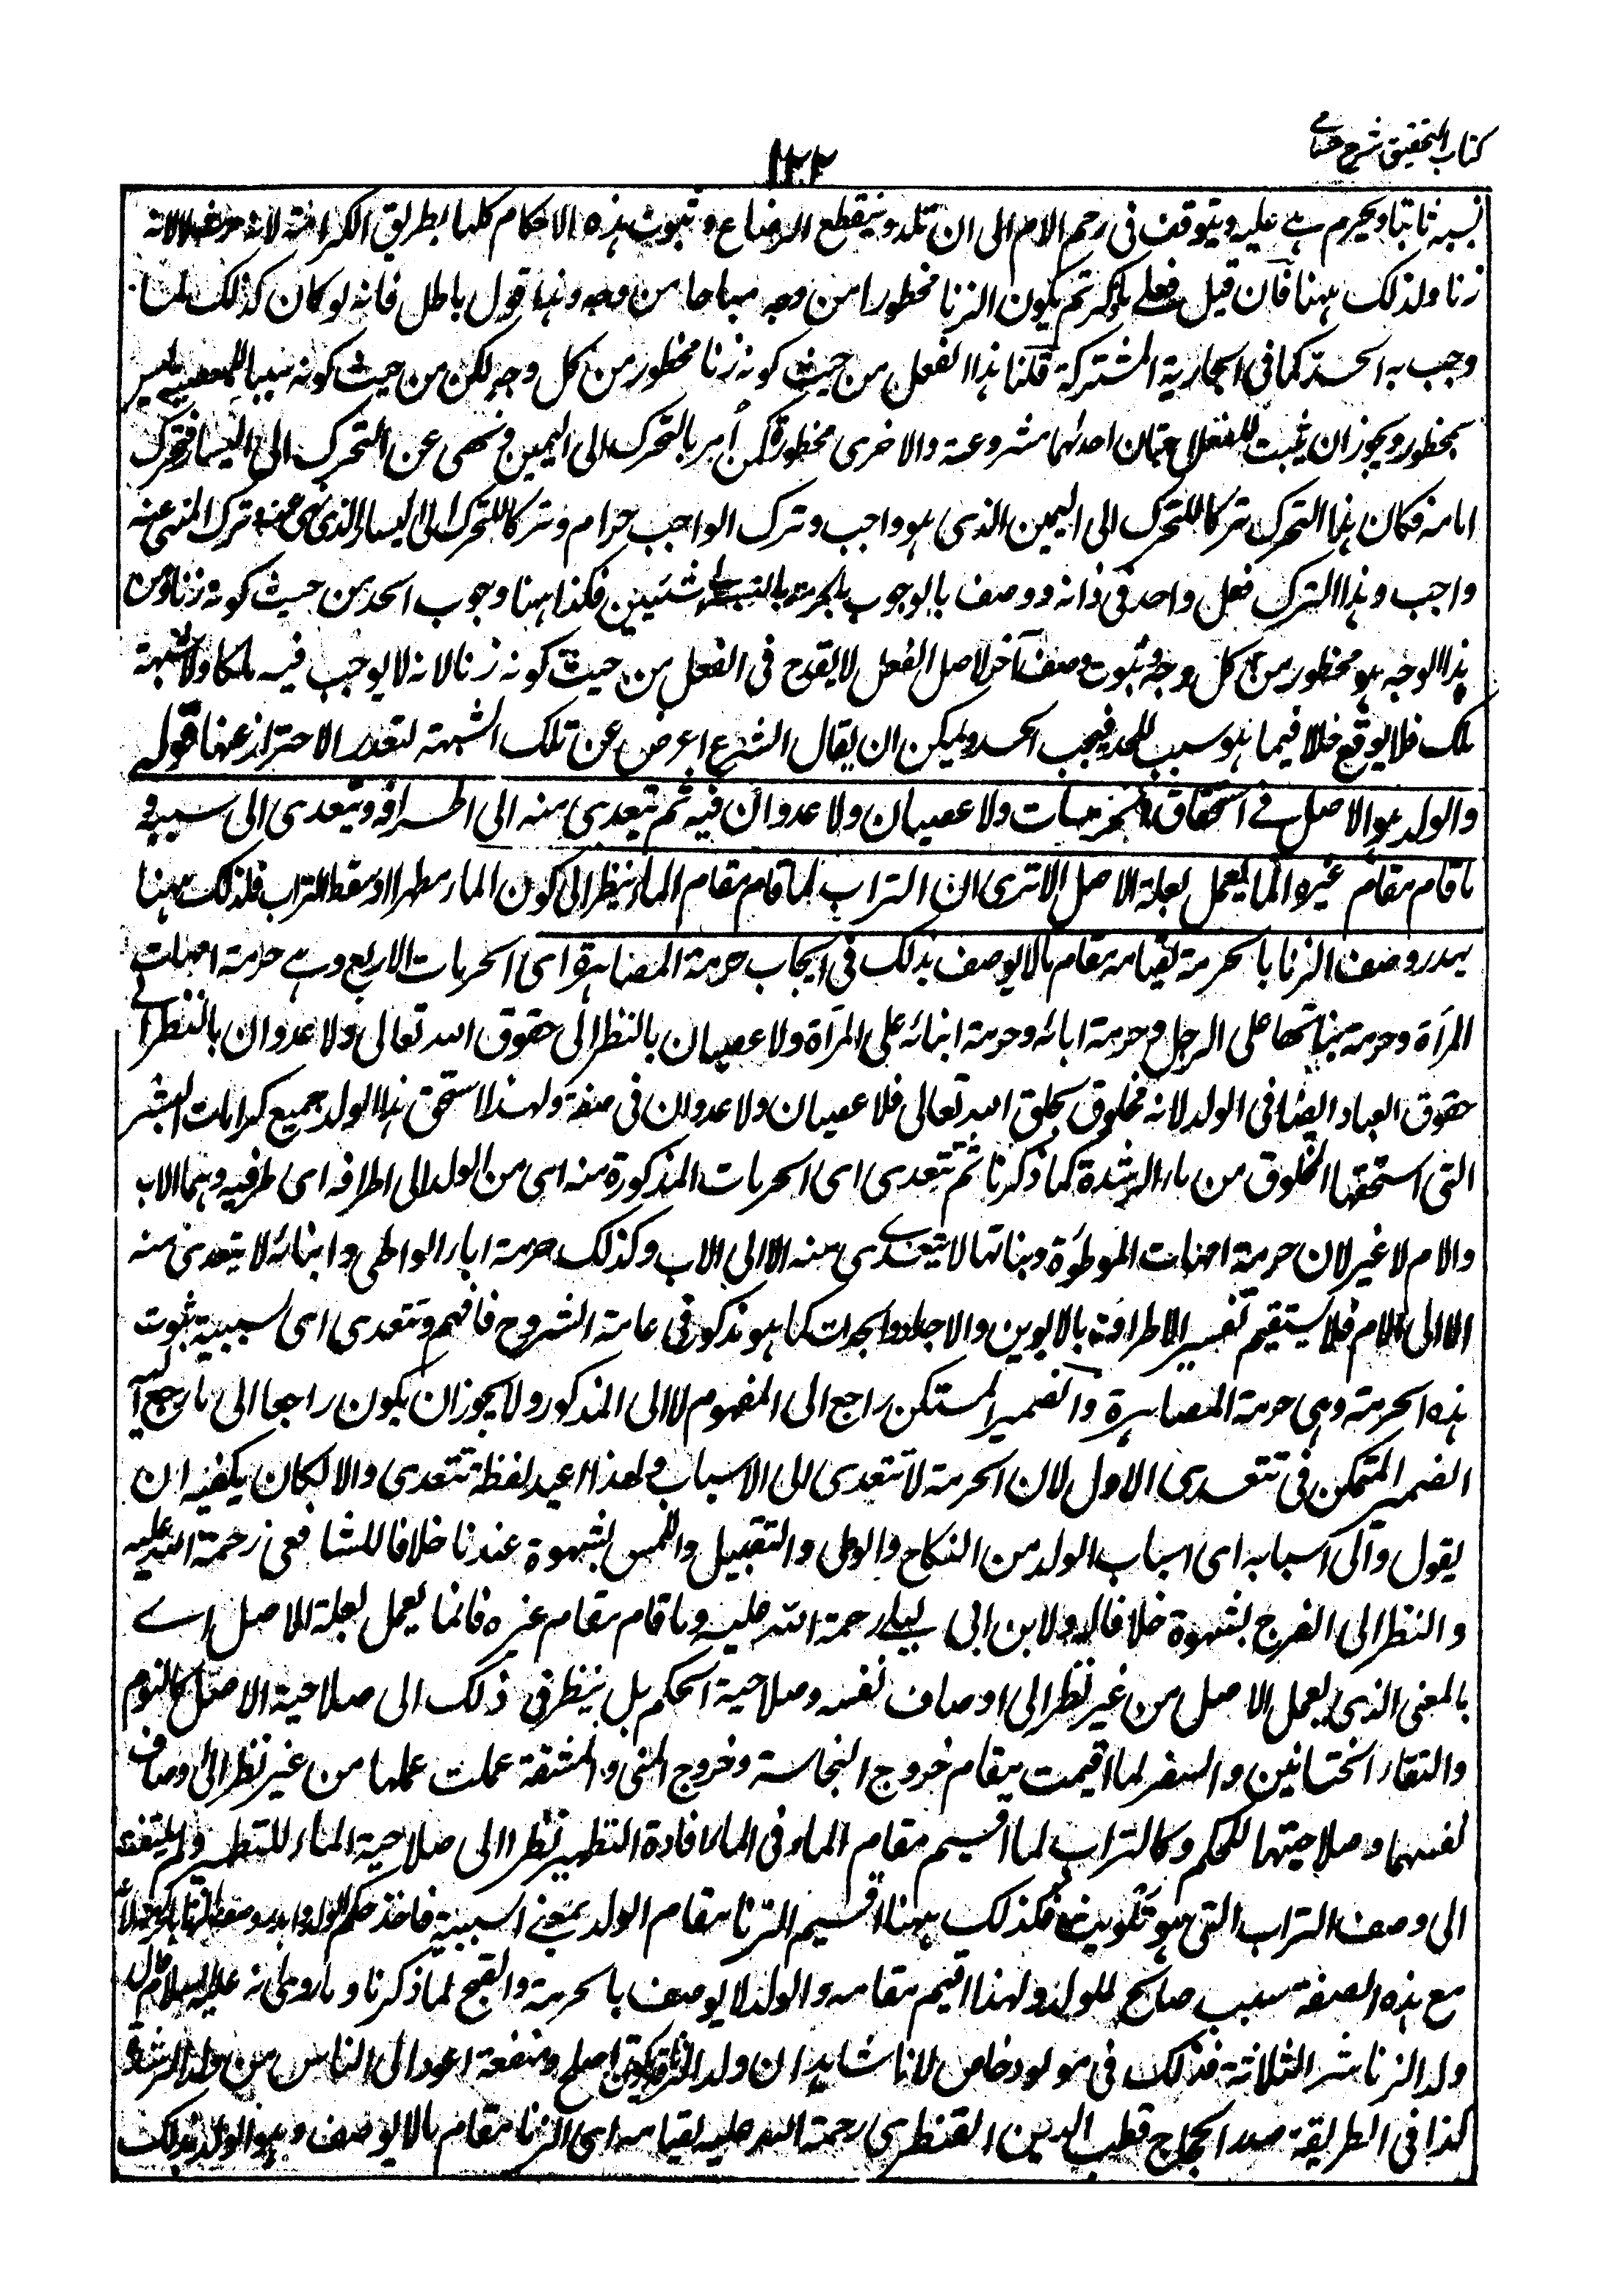 كتاب التحقيق شرح حسامي
١٢٢
نسبه ثابتا ويحرم هي عليه ويتوقف في رحم الام الى ان تلد وينقطع الرضاع وثبوت هذه الاحكام كلها بطريق الكرامة لانه ولد لا لانه
زنا ولذلك ههنا فان قيل فعلى ما ذكرتم يكون الزنا محظورا من وجه مباحا من وجه وهذا قول باطل فانه لو كان كذلك لما
وجب به الحد كما في الجارية المشتركة قلنا هذا الفعل من حيث كونه زنا محظور من كل وجه لكن من حيث كونه سببا للبعضية ليس
بمحظور ويجوز ان يثبت للفعل جهتان احدهما مشروعة والاخرى محظورة كمن أمر بالتحرك الى اليمين ونهى عن التحرك الى اليسار فتحرك
امامه فكان هذا التحرك تركا للتحرك الى اليمين الذى هو واجب وترك الواجب حرام وتركا للتحرك الى اليسار الذى نهى عنه وترك المنهى عنه
واجب وهذا الترك فعل واحد في ذاته ووصف بالوجوب والحرمة بالنسبة الى شيئين فكذا ههنا وجوب الحد من حيث كونه زنا ومن
هذا الوجه هو محظور من كل وجه وثبوت وصف آخر لاصل الفعل لا يقدح في الفعل من حيث كونه زنا لانه لا يوجب فيه ملكا ولا شبهة
ملك فلا يوقع خللا فيما هو سبب للحد فيجب الحد ويمكن ان يقال الشرع اعرض عن تلك الشبهة لتعذر الاحتراز عنها قوله
والولد هو الاصل في استحقاق الحرمات ولا عصيان ولا عدوان فيه ثم تتعدى منه الى اطرافه وتتعدى الى سببه و
ما قام مقام غيره انما يعمل بعلة الاصل الا ترى ان التراب لما قام مقام الماء نظر الى كون الماء مطهرا وسقط التراب فكذلك ههنا
يهدر وصف الزنا بالحرمة لقيامه مقام ما لا يوصف بذلك في ايجاب حرمة المصاهرة اى الحرمات الاربع وهي حرمة امهات
المرأة وحرمة بناتها على الرجل وحرمة ابائه وحرمة ابنائه على المرأة ولا عصيان بالنظر الى حقوق الله تعالى ولا عدوان بالنظر الى
حقوق العباد ايضا في الولد لانه مخلوق بخلق الله تعالى فلا عصيان ولا عدوان في صنعه ولهذا استحق هذا الولد جميع كرامات البشر
التى استحقها المخلوق من ماء الرشدة كما ذكرنا ثم تتعدى اى الحرمات المذكورة منه اى من الولد الى اطرافه اى طرفيه وهما الاب
والام لا غير لان حرمة امهات الموطوءة وبناتها لا تتعدى منه الا الى الاب وكذلك حرمة اباء الواطى وابنائه لا يتعدى منه
الا الى الام فلا يستقيم تفسير الاطراف بالابوين والاجداد والجدات كما هو مذكور في عامة الشروح فافهم وتتعدى اى سببية ثبوت
هذه الحرمة وهى حرمة المصاهرة والضمير المستكن راجع الى المفهوم لا الى المذكور ولا يجوز ان يكون راجعا الى ما رجع اليه
الضمير المتمكن في تتعدى الاول لان الحرمة لا تتعدى الى الاسباب ولهذا اعيد لفظة تتعدى والا لكان يكفيه ان
يقول والى اسبابه اى اسباب الولد من النكاح والوطى والتقبيل واللمس بشهوة عندنا خلافا للشافعى رحمة الله عليه
والنظر الى الفرج بشهوة خلافا له ولابن ابي ليلى رحمة الله عليه وما قام مقام غيره فانما يعمل بعلة الاصل اے
بالمعنى الذى يعمل الاصل من غير نظر الى اوصاف نفسه وصلاحية الحكم بل ينظر في ذلك الى صلاحية الاصل كالنوم
والتقاء الختانين والسفر لما اقيمت مقام خروج النجاسة وخروج المنى والمشقة عملت عملها من غير نظر الى اوصاف
نفسها وصلاحيتها للحكم وكالتراب لما اقيم مقام الماء في افادة التطهير نظر الى صلاحية الماء للتطهير ولم يلتفت
الى وصف التراب التى هو تلويث فكذلك ههنا اقيم الزنا مقام الولد بمعنى السببية فاخذ حكم الولد واهدر وصف الزنا بالحرمة لانه
مع هذه الصفة سبب صالح للولد ولهذا اقيم مقامه والولد لا يوصف بالحرمة والقبح لما ذكرنا وما روى انه عليه السلام قال
ولد الزنا شر الثلاثة فذلك في مولود خاص لانا نشاهد ان ولد الزنا قد يكون اصلح ومنفعة اعود الى الناس من ولد الرشدة
كذا في الطريقة صدر الحجاج قطب الدين القنطرى رحمة الله عليه لقيامه اى الزنا مقام ما لا يوصف وهو الولد بذلك